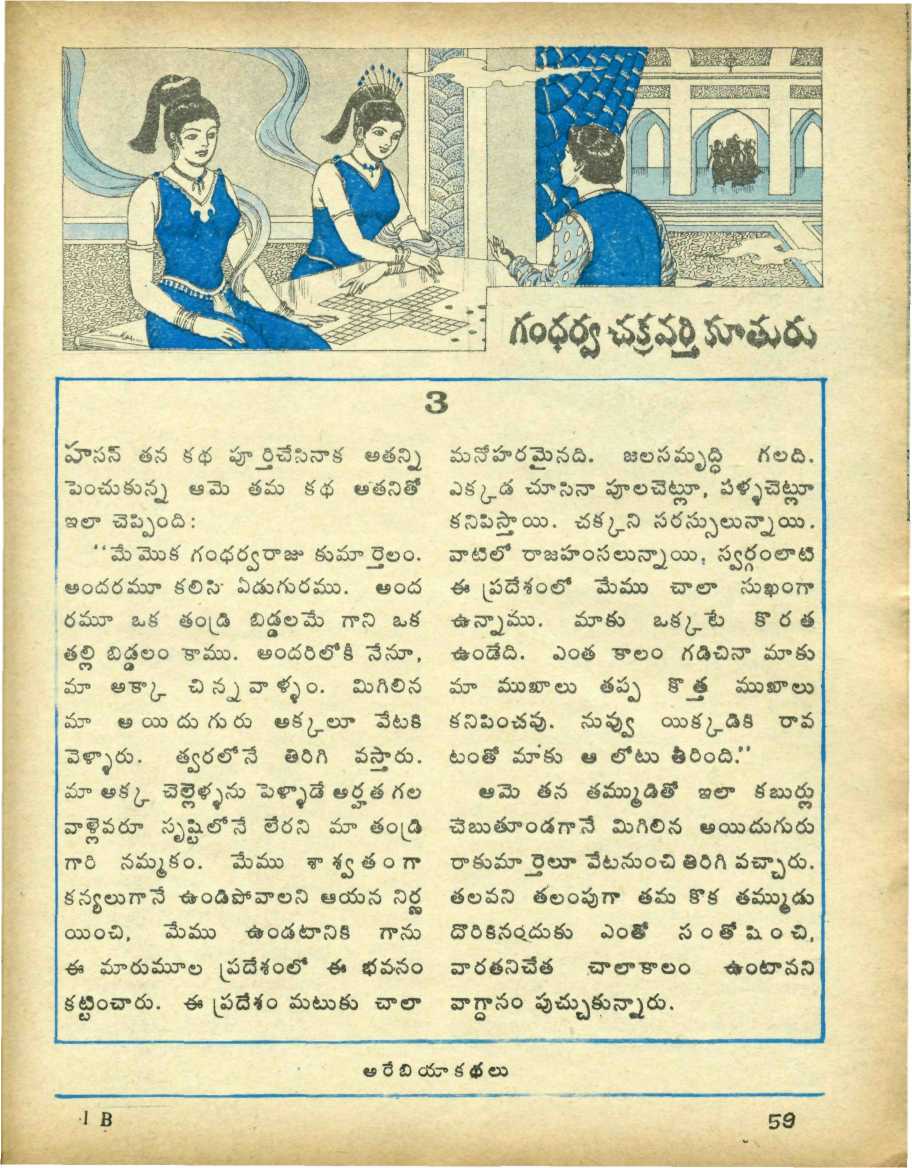 గంధర్వ చక్రవర్తి కూతురు
3
హసన్ తన కథ పూర్తిచేసినాక అతన్ని
పెంచుకున్న ఆమె తమ కథ అతనితో
ఇలా చెప్పింది :
“మేమొక గంధర్వరాజు కుమార్తెలం.
అందరమూ కలిసి ఏడుగురము. అంద
రమూ ఒక తండ్రి బిడ్డలమే గాని ఒక
తల్లి బిడ్డలం కాము. అందరిలోకి నేనూ,
మా అక్కా చిన్నవాళ్ళం. మిగిలిన
మా అయిదుగురు అక్కలూ వేటకి
వెళ్ళారు. త్వరలోనే తిరిగి వస్తారు.
మా అక్క చెల్లెళ్ళను పెళ్ళాడే అర్హత గల
వాళ్లెవరూ సృష్టిలోనే లేరని మా తండ్రి
గారి నమ్మకం. మేము శాశ్వతంగా
కన్యలుగానే ఉండిపోవాలని ఆయన నిర్ణ
యించి, మేము ఉండటానికి గాను
ఈ మారుమూల ప్రదేశంలో ఈ భవనం
కట్టించారు. ఈ ప్రదేశం మటుకు చాలా
మనోహరమైనది. జలసమృద్ధి గలది.
ఎక్కడ చూసినా పూలచెట్లూ, పళ్ళచెట్లూ
కనిపిస్తాయి. చక్కని సరస్సులున్నాయి.
వాటిలో రాజహంసలున్నాయి, స్వర్గంలాటి
ఈ ప్రదేశంలో మేము చాలా సుఖంగా
ఉన్నాము. మాకు ఒక్కటే కొరత
ఉండేది. ఎంత కాలం గడిచినా మాకు
మా ముఖాలు తప్ప కొత్త ముఖాలు
కనిపించవు. నువ్వు యిక్కడికి రావ
టంతో మాకు ఆ లోటు తీరింది.”
ఆమె తన తమ్ముడితో ఇలా కబుర్లు
చెబుతూండగానే మిగిలిన అయిదుగురు
రాకుమార్తెలూ వేటనుంచి తిరిగి వచ్చారు.
తలవని తలంపుగా తమ కొక తమ్ముడు
దొరికినందుకు ఎంతో సంతోషించి,
వారతనిచేత చాలాకాలం ఉంటావని
వాగ్దానం పుచ్చుకున్నారు.
అరేబియా కథలు
1 B
59